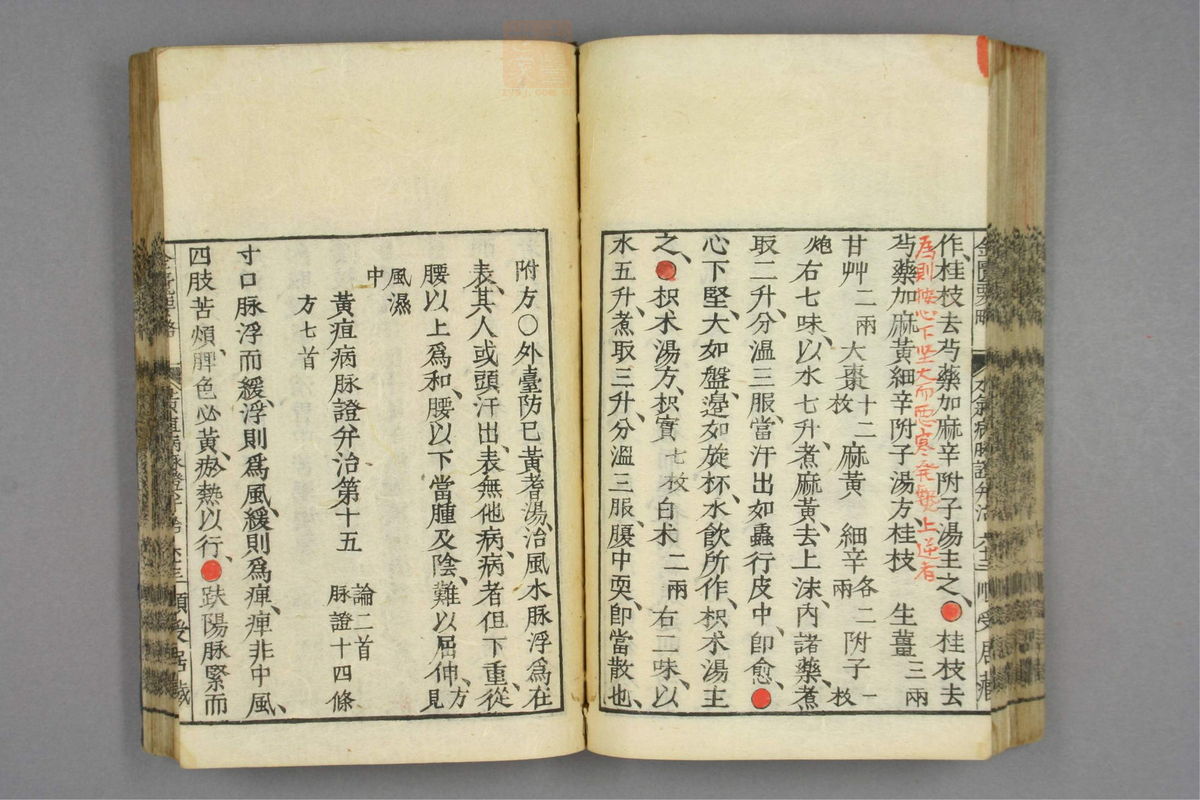 作、桂枝去芍藥加麻辛附子湯主之、●桂枝去
爲則按心下坚大而惡寒發熱上逆者
芍藥加麻黃細辛附子湯方、桂枝 生薑三兩
甘艸二兩 大棗十二枚 麻黃 細辛各二兩 附子一枚
炮右七味、以水七升、煮麻黃、去上沫、內諸藥、煮
取二升、分溫三服、當汗出如蟲行皮中、卽愈、●
心下堅、大如盤、邉如旋杯、水飲所作、枳朮湯主
之、●枳朮湯方、枳實七枚白朮二兩右二味、以
水五升、煮取三升、分溫三服、腹中耎、卽當散也、
附方○外臺防已黃耆湯、治風水脉浮爲在
表、其人或頭汗出、表無他病、病者但下重、從
腰以上爲和、腰以下當腫及陰、難以屈伸、方見
風濕中
黃疸病脉證弁治第十五 論二首 脉證十四條
方七首
寸口脉浮而緩、浮則爲風、緩則爲痺、痺非中風、
四肢苦煩、脾色必黃、瘀熱以行、●趺陽脉緊而
水氣病脉證弁治
順受居藏